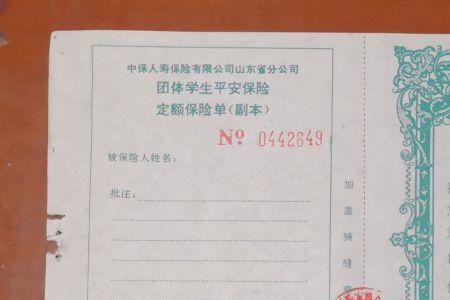 中保人寿保险有限公司山东省分公司
团体学生平安保险
定额保险单(副本)
No 0442649
被保险人姓名:
批注:
加盖骑缝章